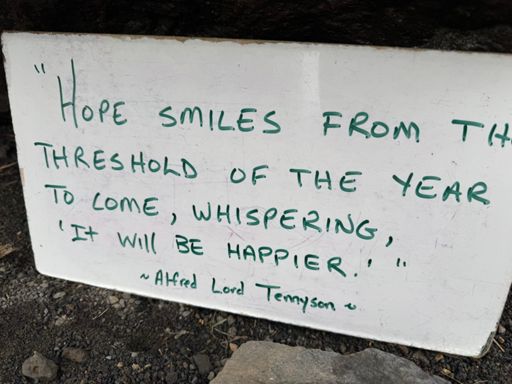 "HOPE SMILES FROM TH
THRESHOLD OF THE YEAR
TO COME, WHISPERING,
'It will BE HAPPIER.' "
~ Alfred Lord Tennyson ~